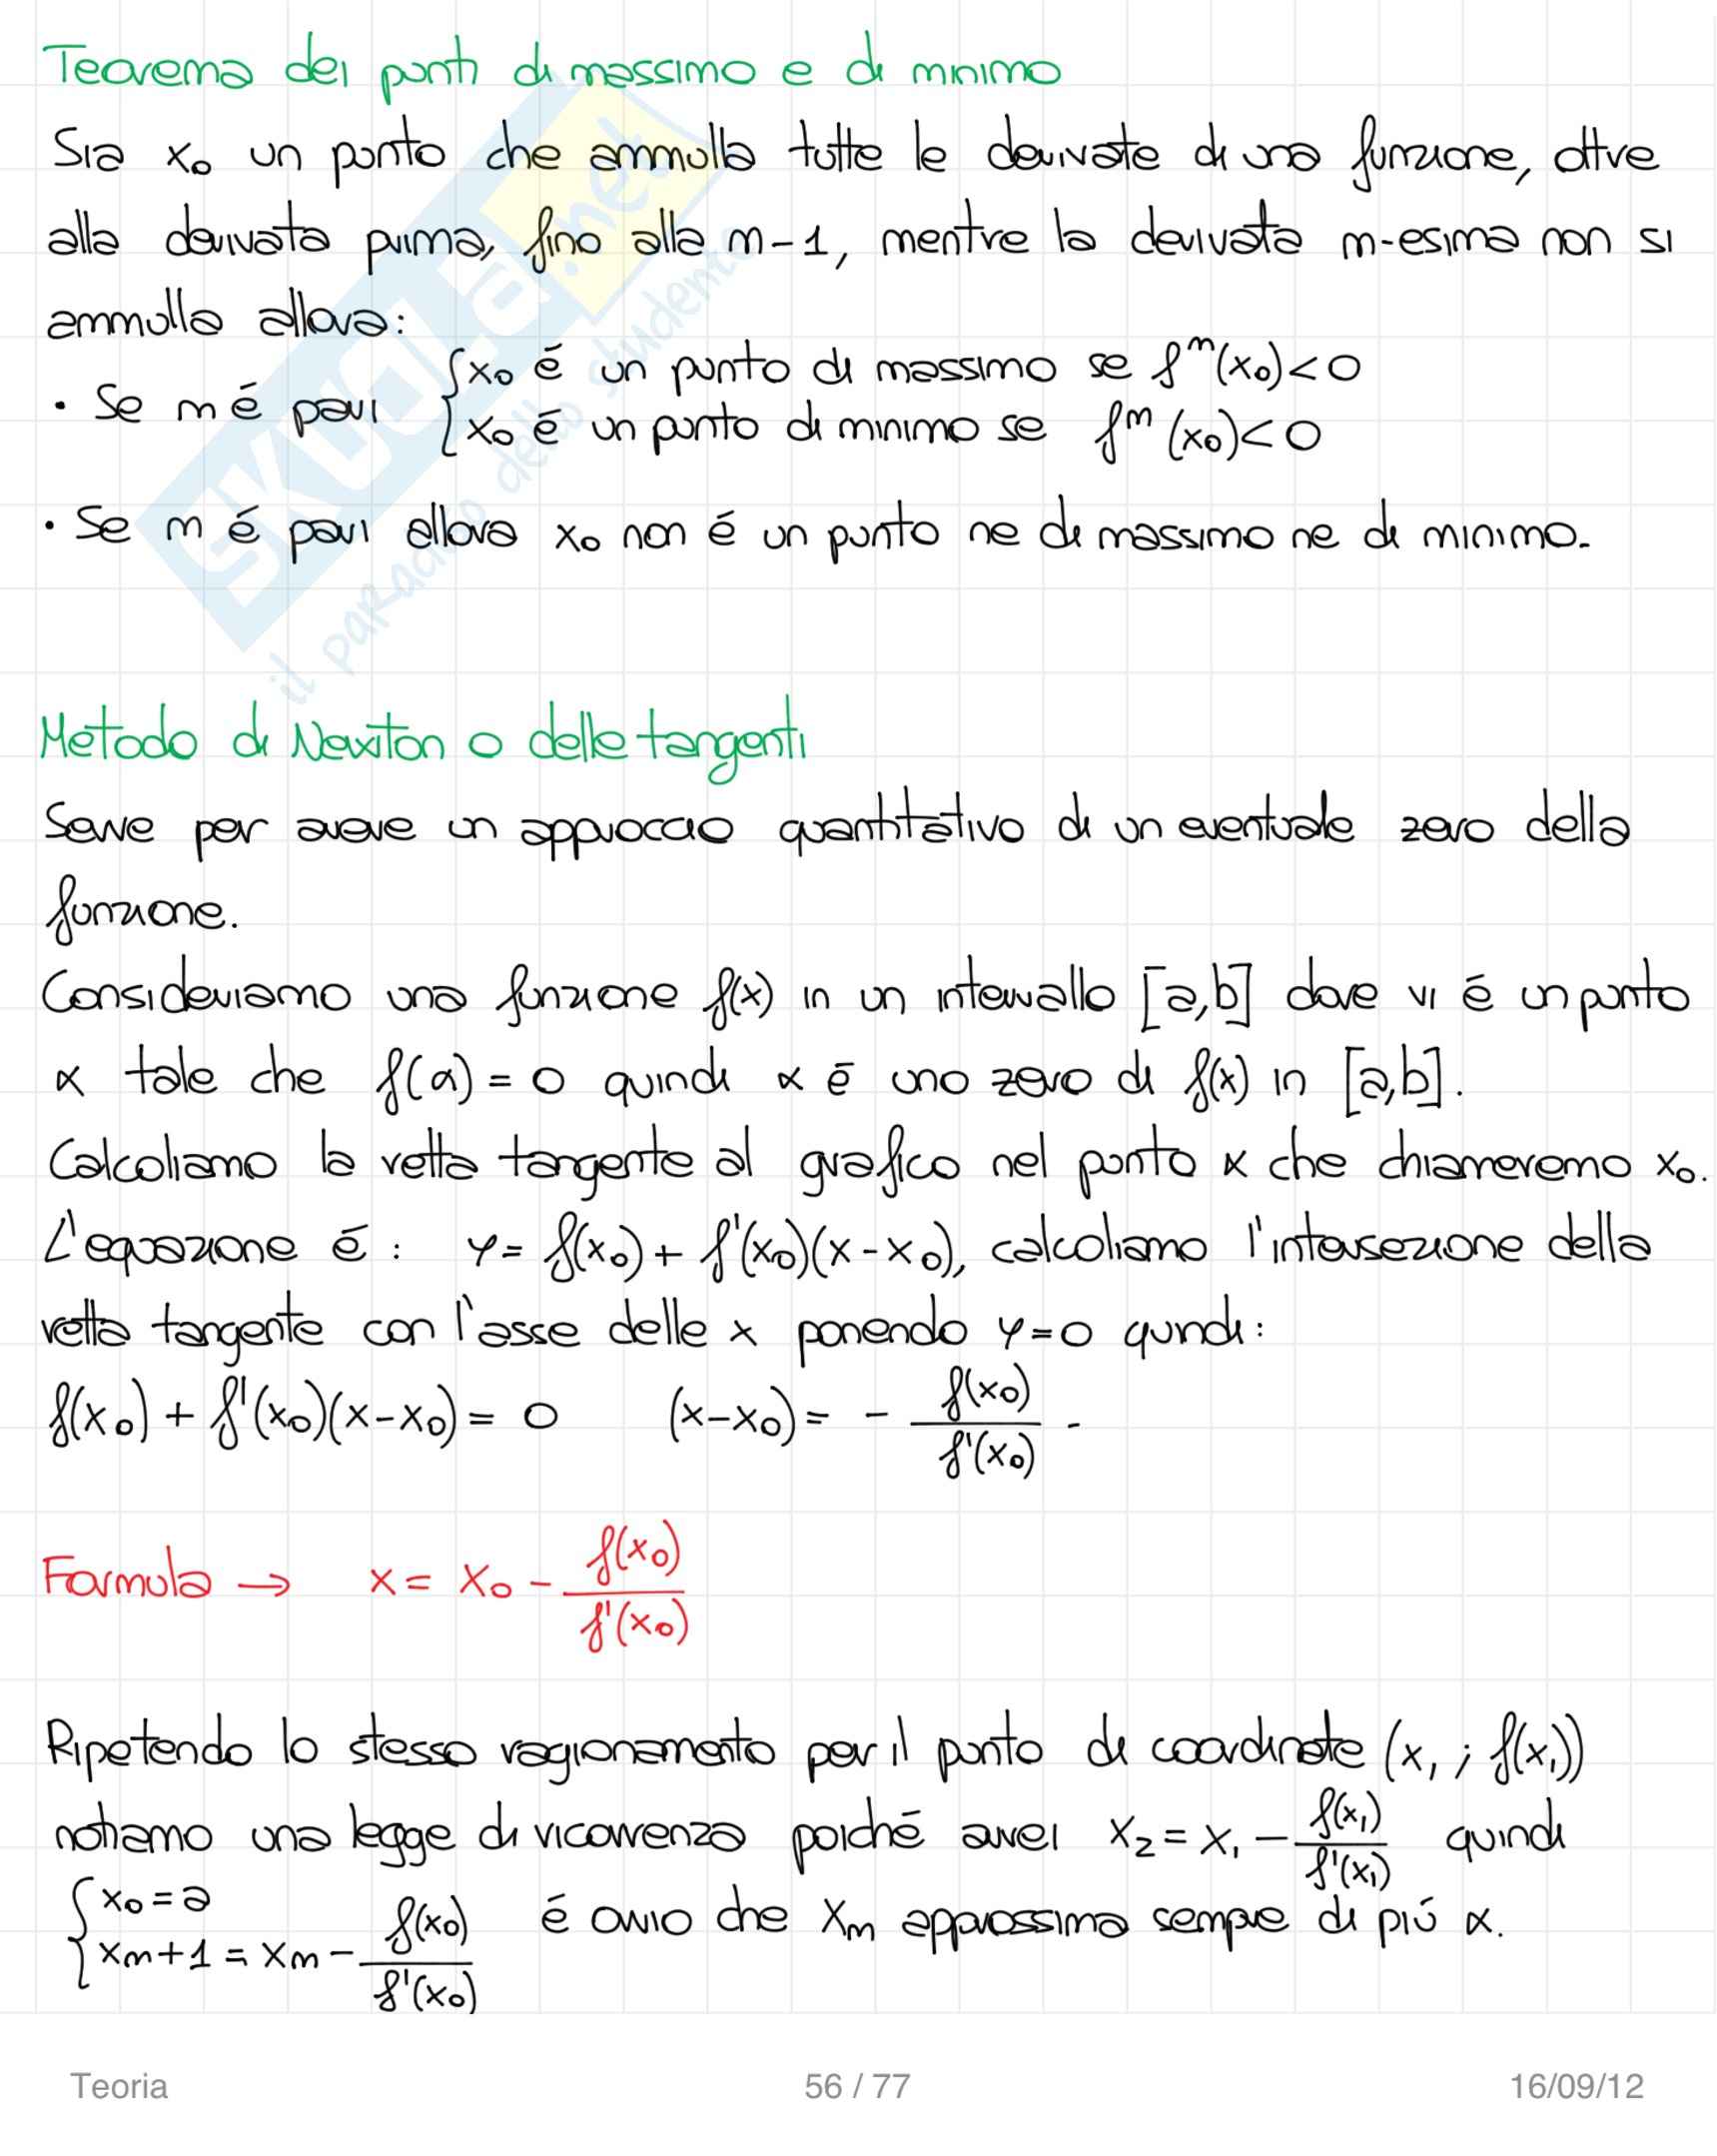 Teorema dei punti di massimo e di minimo
Sia x₀ un punto che annulla tutte le derivate di una funzione, oltre
alla derivata prima, fino alla n-1, mentre la derivata n-esima non si
annulla allora:
• Se n é pari { x₀ é un punto di massimo se fⁿ(x₀)<0
x₀ é un punto di minimo se fⁿ(x₀)<0
• Se n é pari allora x₀ non é un punto ne di massimo ne di minimo.
Metodo di Newton o delle tangenti
Serve per avere un approccio quantitativo di un eventuale zero della
funzione.
Consideriamo una funzione f(x) in un intervallo [a,b] dove vi é un punto
α tale che f(α)=0 quindi α é uno zero di f(x) in [a,b].
Calcoliamo la retta tangente al grafico nel punto x che chiameremo x₀.
L'equazione é: y= f(x₀)+ f'(x₀)(x-x₀), calcoliamo l'intersezione della
retta tangente con l'asse delle x ponendo y=0 quindi:
f(x₀) + f'(x₀)(x-x₀)= 0 (x-x₀)= - f(x₀)/f'(x₀) .
Formula → x= x₀ - f(x₀)/f'(x₀)
Ripetendo lo stesso ragionamento per il punto di coordinate (x₁ ; f(x₁))
notiamo una legge di ricorrenza poiché avrei x₂= x₁ - f(x₁)/f'(x₁) quindi
{ x₀=a
xn+1 = xn - f(x₀)/f'(x₀) é ovvio che xn approssima sempre di piú α.
SKUOLA.net
il paradiso dello studente
Teoria 56 / 77 16/09/12